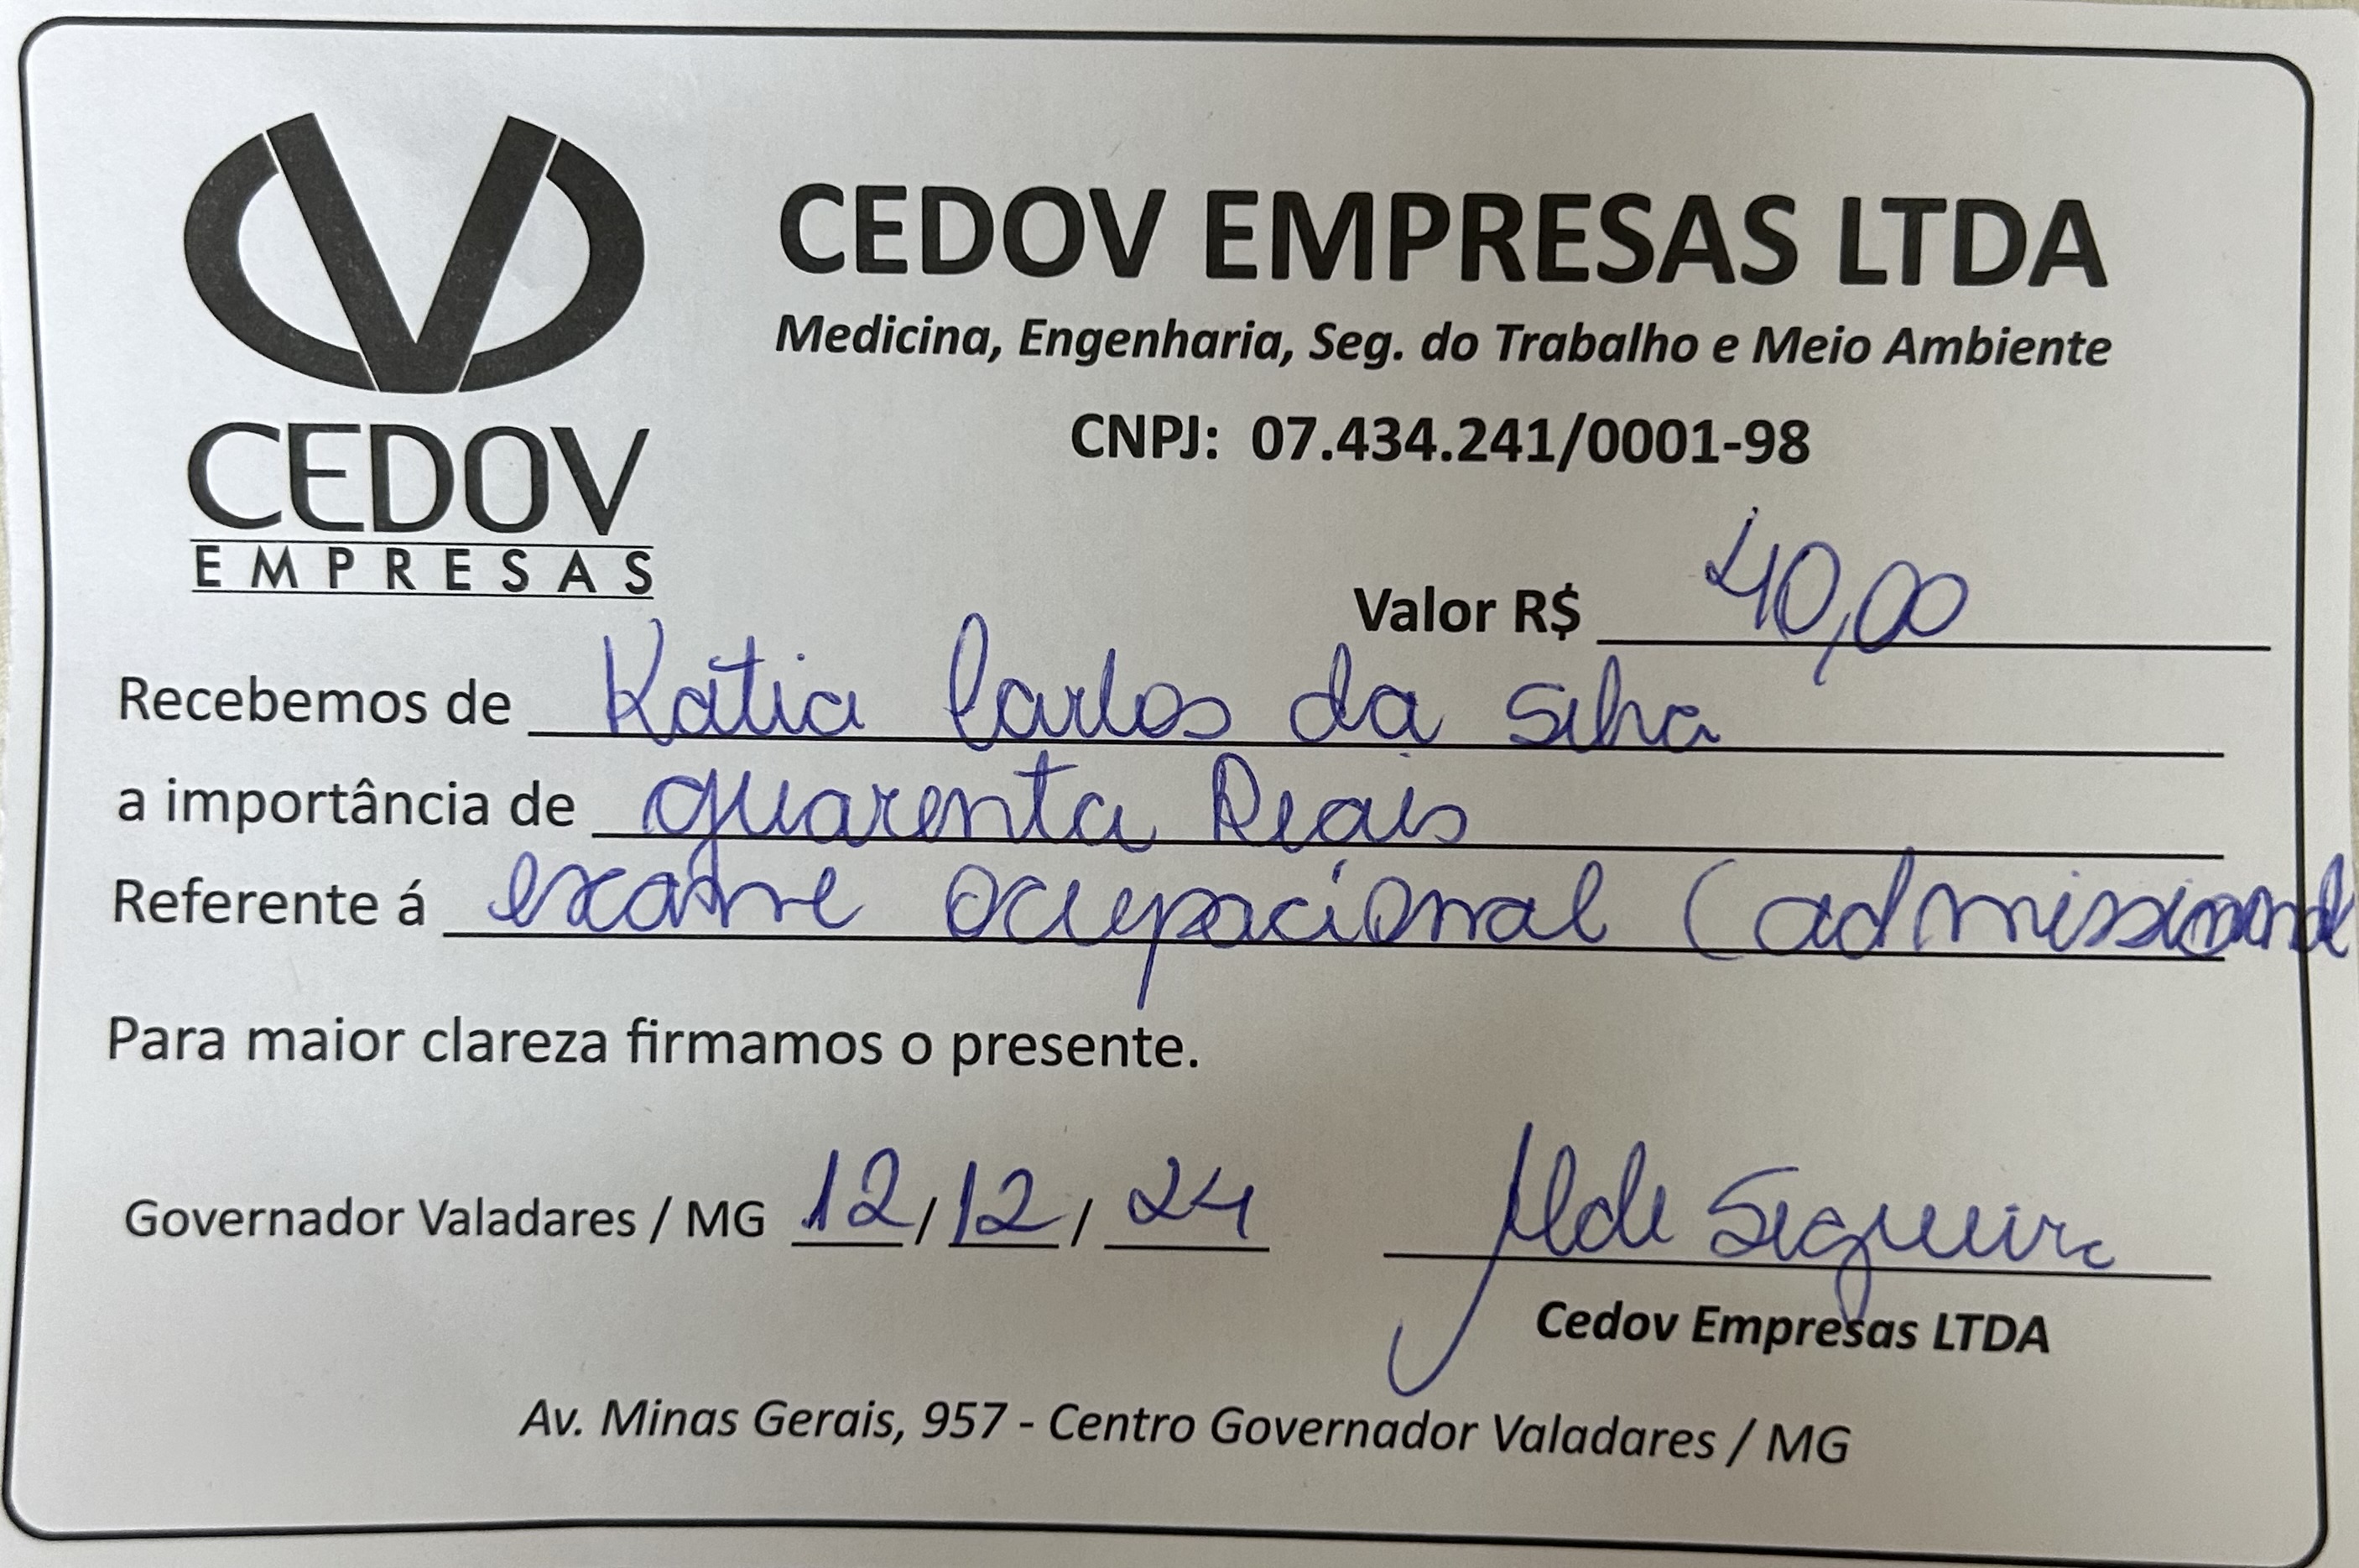 CEDOV
EMPRESAS
CEDOV EMPRESAS LTDA
Medicina, Engenharia, Seg. do Trabalho e Meio Ambiente
CNPJ: 07.434.241/0001-98
Valor R$ 40,00
Recebemos de Katia Carlos da Silva
a importância de quarenta Reais
Referente á exame ocupacional (admissional
Para maior clareza firmamos o presente.
Governador Valadares / MG 12/12/24
Sequeira
Cedov Empresas LTDA
Av. Minas Gerais, 957 - Centro Governador Valadares / MG